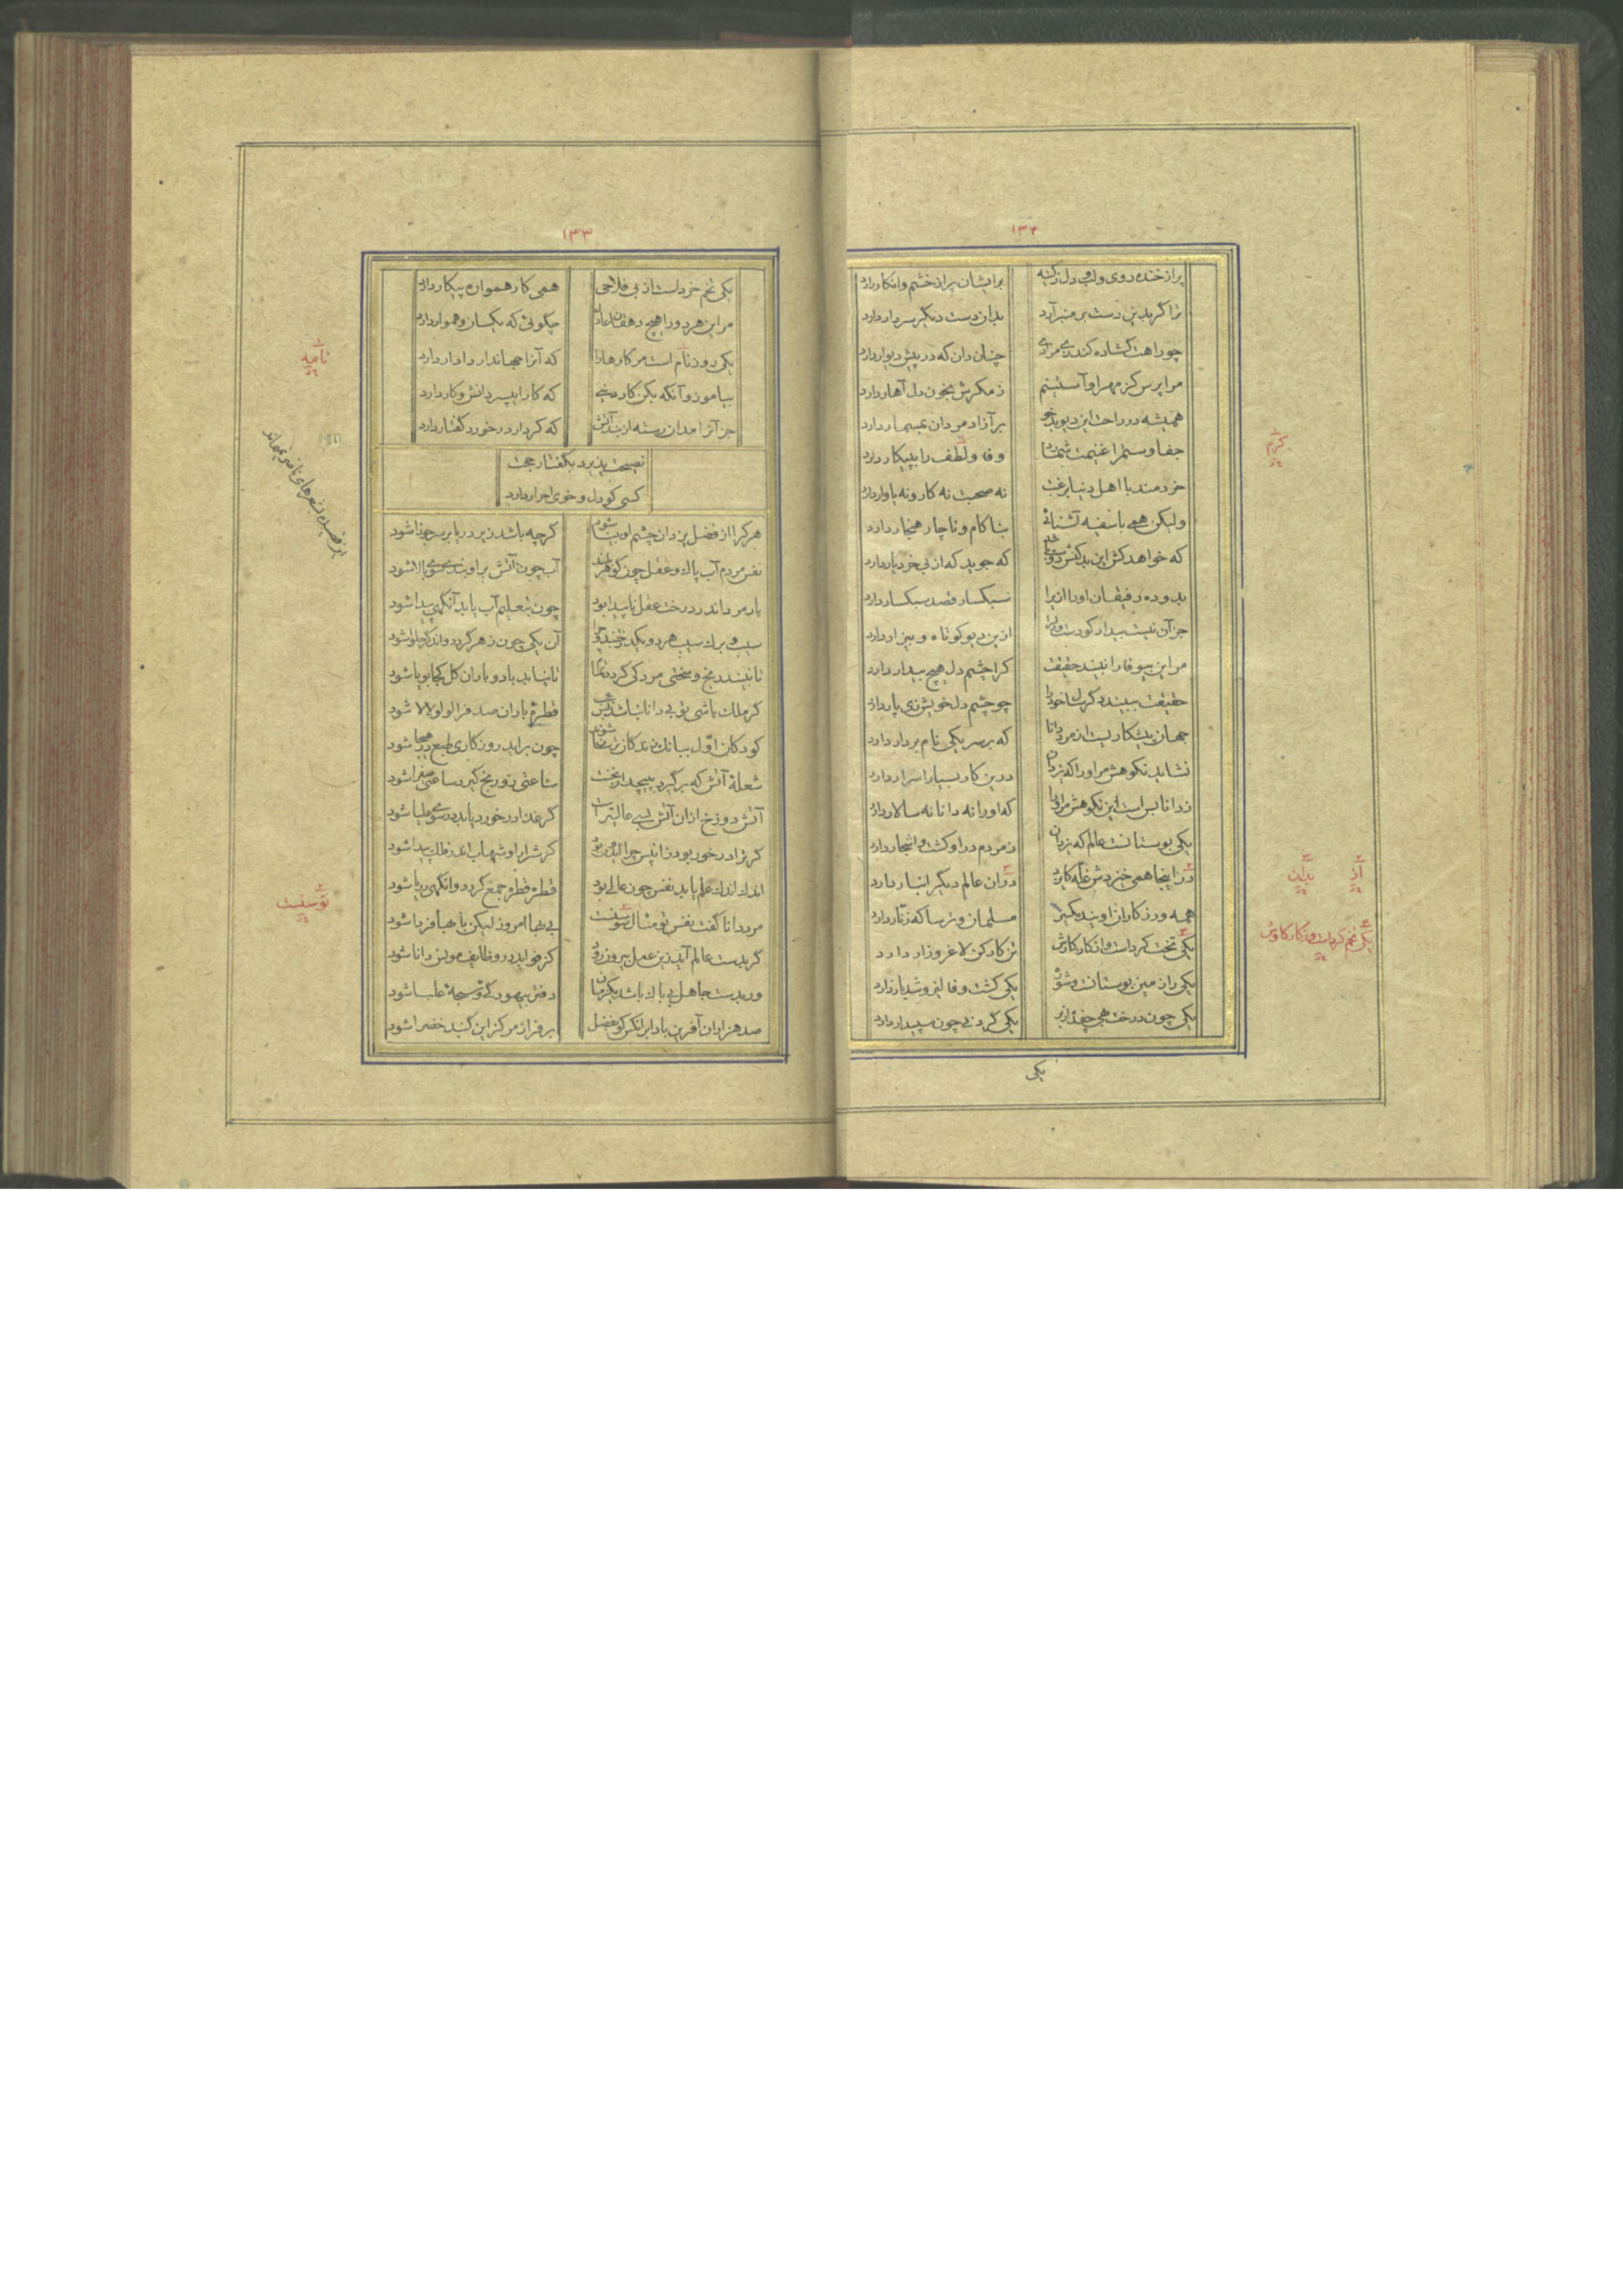 ۱۳۲
پر از خنده روی و لب و دل ز کینه
بر ایشان پر از خشم و انکار دارد
ترا گر بدین دست بر منبر آرد
بدان دست دیگر سر دار دارد
چو راهت گشاده کند زی مرادی
چنان دان که در پیش دیوار دارد
مرا پرس کز مهر او آستینم
ز مکرش بخون دل آهار دارد
همیشه در راحت این دیو بدخو
بر آزاد مردان بمسمار دارد
جفا و ستم را غنیمت شمارد
وفا و لطف را به پیکار دارد
خردمند با اهل دنیا برغبت
نه صحبت نه کار و نه بازار دارد
ولیکن همی با سفیه آشنائی
بناکام و ناچار هنجار دارد
که خواهد کش این بدکنش دوست باشد
که جوید که از بی خرد یار دارد
بد و ده رفیقان او را ازیرا
سبکسار قصد سبکسار دارد
جز آن نیست بیدار کو دست و دل را
ازین دیو کوتاه و بیزار دارد
مر این بیوفا را نبیند حقیقت
کرا چشم دل هیچ بیدار دارد
حقیقت ببیند دگر سال خود را
چو چشم دل خویش زی پار دارد
جهان پیشکاریست از مرد دانا
که بر سر یکی نام بردار دارد
نشاید نکوهش مر او را که یزدان
درین کار بسیار اسرار دارد
ز دانا بس است این نکوهش مر او را
که او را نه دانا نه سالار دارد
یکی بوستانست عالم که یزدان
ز مردم درو کشت و اشجار دارد
در اینجا همی خیزدش غله کایزد
در آن عالم دیگر انبار دارد
همه ورزکاران اویند یکسر
مسلمان و ترسا که زنار دارد
یکی تخت کردست و انکار کارش
تن کارکن لاغر و زار دارد
یکی راز مین بوستانست و شوره
یکی کشت و فالیز و شدیار دارد
یکی چون درخت بهی چفده از بر
یکی گردنی چون سپیدار دارد
یکی
کرم
از
بدین
یکی تخم کردست و ز کار کاوش
۱۳۳
یکی تخم خردست از بی فلاحی
همی کار هموار پیکار دارد
مر این هر دو را هیچ دهقان عادل
چگوئی که یکسان و هموار دارد
یکی روز نام است مر کارها را
که آنرا جهاندار دادار دارد
بیاموز و آنگه بکن کار دینی
که کار ای پسر دانش و کار دارد
جز آنرا مدان رسته از بند آتش
که کردار در خورد گفتار دارد
نصیحت پذیرد بگفتار حجت
کسی کو دل و خوی احرار دارد
هر کرا از فضل یزدان چشم او بینا شود
گرچه باشد زیر دریا بر سر جوزا شود
نفس مردم آب پاک و عقل چون گوهر بود
آب چون آتش بر او بند سوی بالا شود
یار مرد اندر درخت عقل ناپیدا بود
چون بتعلیم آب یابد آنگهی پیدا شود
سیب و برگ سیب هر دو یکدیگر
آن یکی چون زهر گردد واندگر حلوا شود
تا نبیند رنج و سختی مرد کی گردد تمام
تا نیابد باد و باران گل کجا بویا شود
گر ملک باشی تو بی دانا نباشد بس عجب
قطرهٔ باران صدف را لولو لالا شود
کودکان اول ببانک زند کان ترسان شوند
چون برآید روزگاری طبع در هیجا شود
شعلهٔ آتش که برگیرد بپیچد از نخست
ساعتی زو رنج گیرد ساعتی صفرا شود
آتش دوزخ از آن آتش بسی عالیتر است
گر غذا در خورد یابد زی سوی علیا شود
گر ترا در خور بود زانپس چرا ایمن بود
گر شرار او شهاب اندر فلک پیدا شود
اندک اندک علم یابد نفس چون عالی بود
قطره قطره جمع گردد وانگهی دریا شود
مرد دانا گفت نفس تو مثال سوسنست
بی بها امروز لیکن با بها فردا شود
گر بدست عالم آید زین عمل پیروز رود
کز فواید در وظایف مونس دانا شود
ور بدست جاهل بی باک باشد یکزمان
دفتر بیهود گی و سبحهٔ علیا شود
صد هزاران آفرین باد بر آنکس کو بفضل
بر فراز مرکز این گنبد خضرا شود
نامیه
تو سفنت
این قصیده بشعرهای ناصر نمیماند